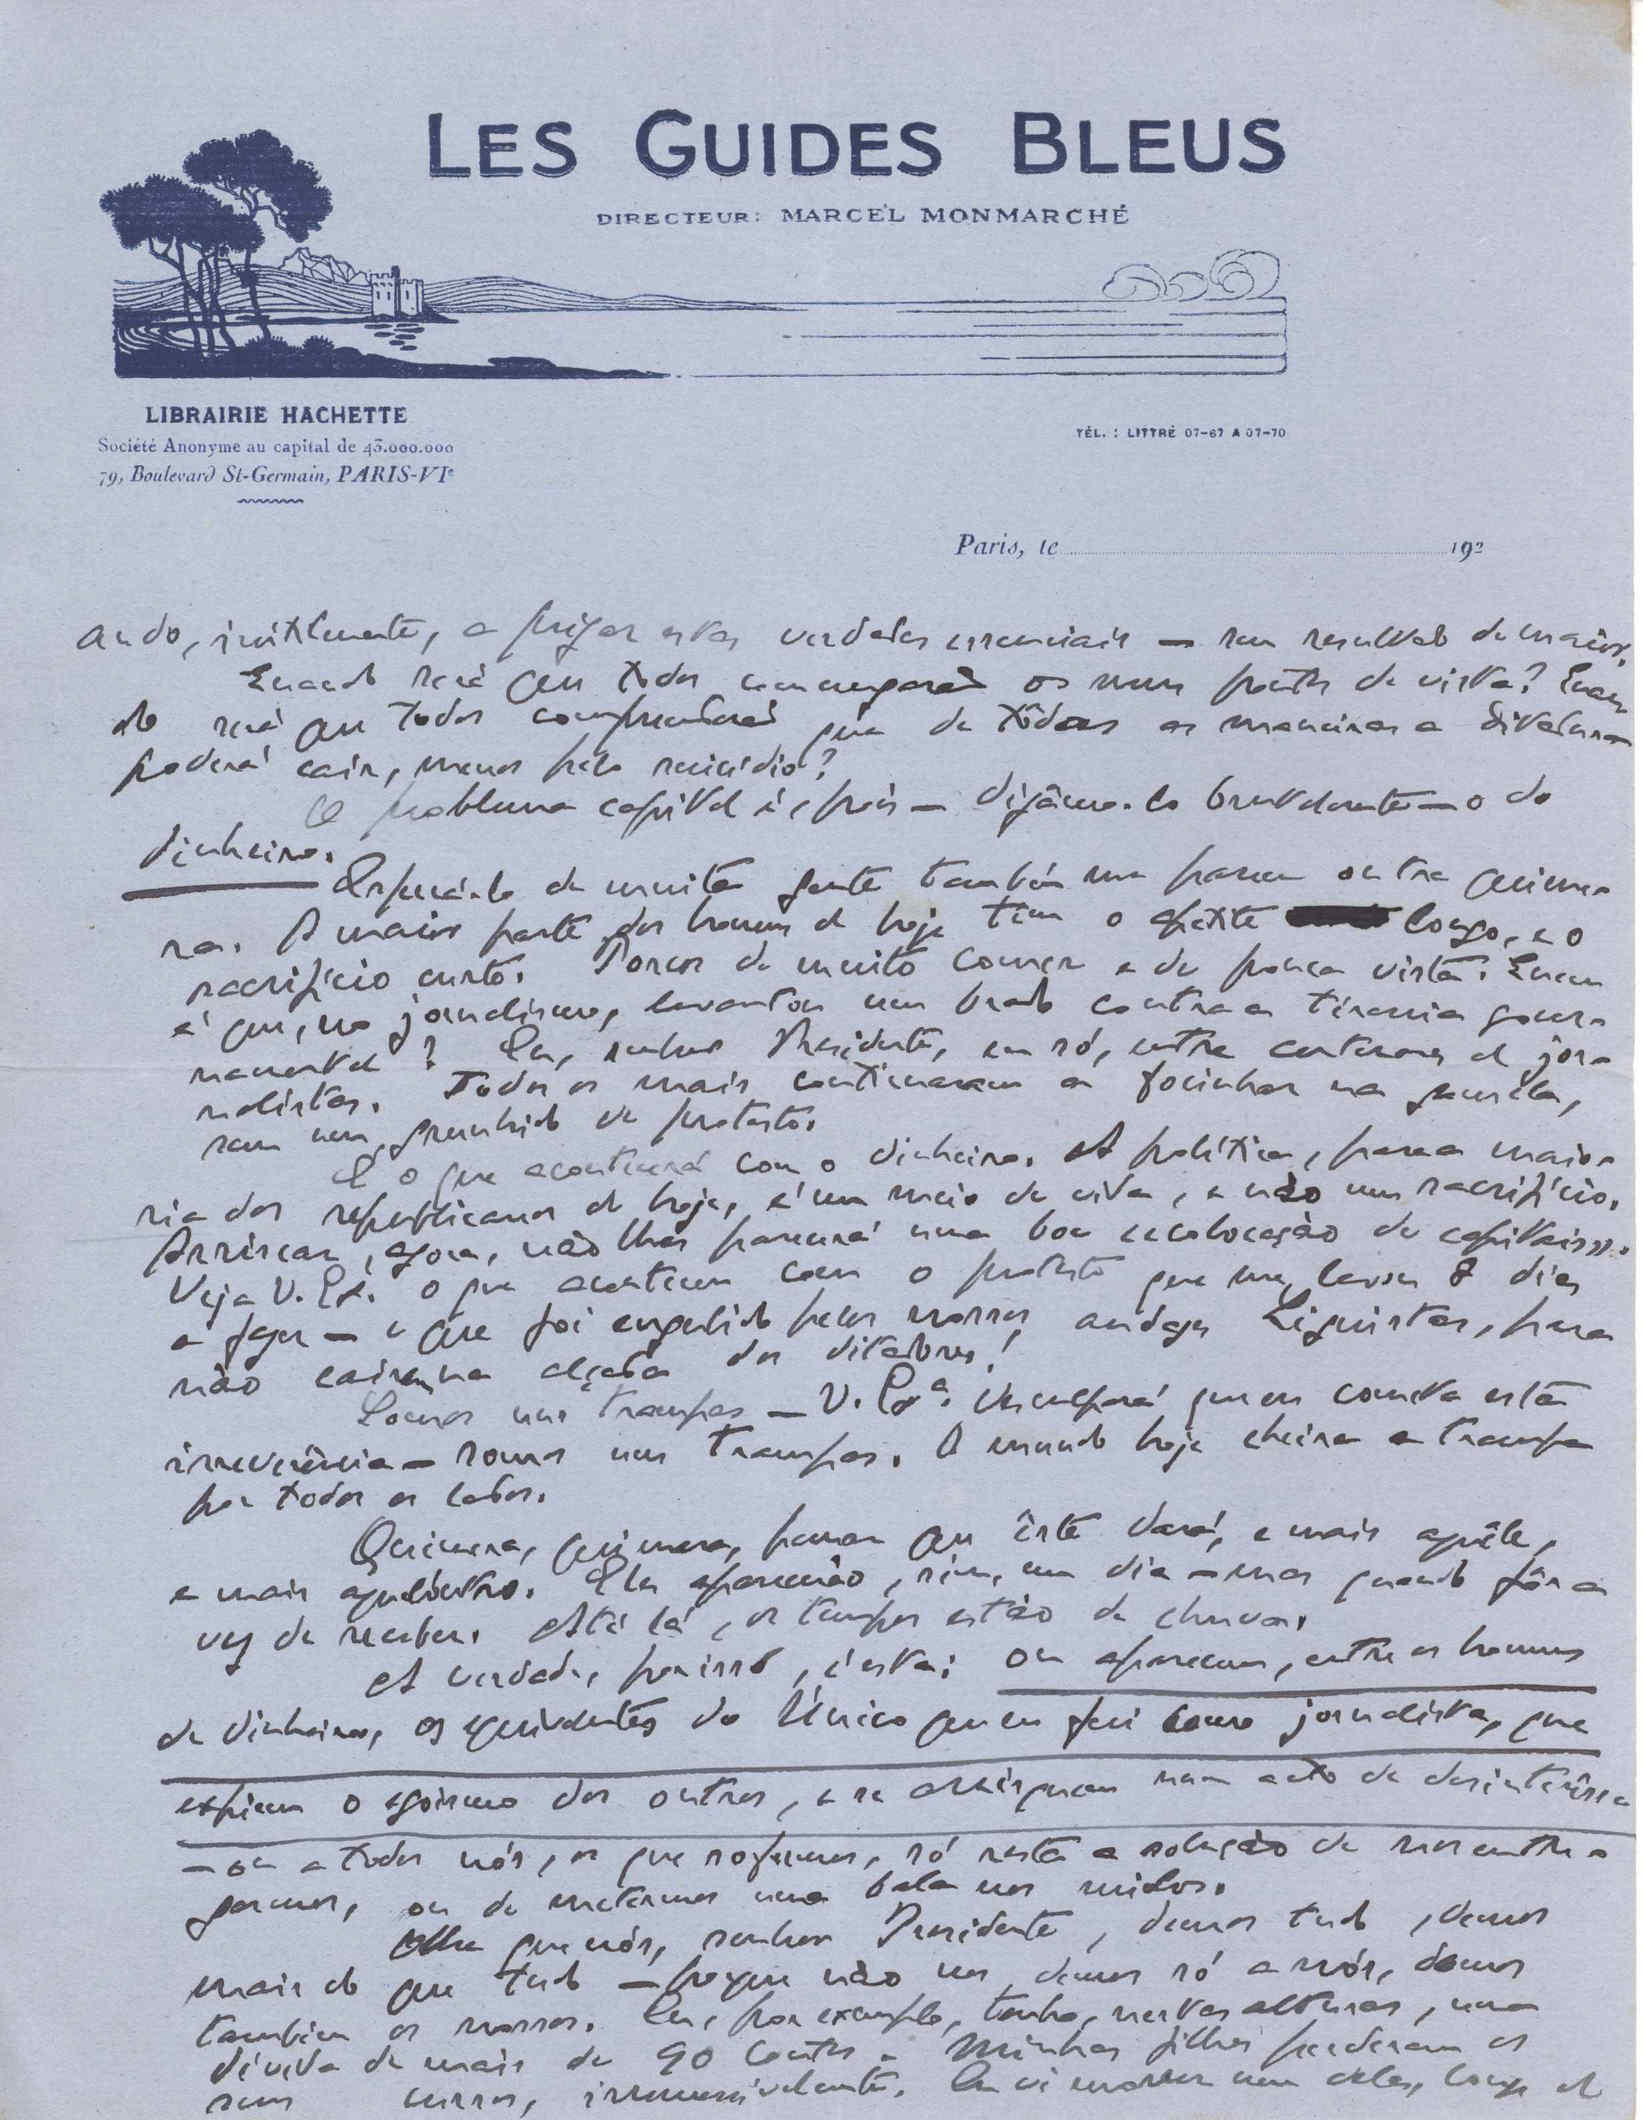 LES GUIDES BLEUS
DIRECTEUR: MARCEL MONMARCHÉ
LIBRAIRIE HACHETTE
Société Anonyme au capital de 43.000.000
79, Boulevard St-Germain, PARIS-VIe
TÉL. : LITTRÉ 07-67 A 07-70
Paris, le 192
ando, inutilmente, a prègar estas verdades essenciais — sem resultado de maior.
Quando será que todos comungarão os meus pontos de vista? Quan-
do será que todos compreenderão que de tôdas as maneiras a ditadura
poderá cair, menos pelo suicídio?
O problema capital é, pois — digâmo-lo brutalmente — o do
dinheiro.
Esperá-lo de muita gente também me parece outra quime-
ra. A maior parte dos homens de hoje têm o apetite longo, e o
sacrifício curto. Porcos de muito comer e de pouca vista. Quem
é que, no jornalismo, levantou um brado contra a tirania gover-
namental? Eu, senhor Presidente, eu só, entre centenas de jor-
nalistas. Todos os mais continuaram a focinhar na gamela,
sem um grunhido de protesto.
É o que acontecerá com o dinheiro. A política, para a maio-
ria dos republicanos de hoje, é um meio de vida, e não um sacrifício.
Arriscar, agora, não lhes parecerá uma boa colocação de capitais...
Veja V. Ex. o que aconteceu com o protesto que me levou 8 dias
a fazer — e que foi engulido pelos nossos audazes Liguistas, para
não cairem na alçada dos ditadores!
Somos uns trampas — V. Exª. desculpará quem cometa esta
irreverência — somos uns trampas. O mundo hoje cheira a trampa
por todos os lados.
Quimera, quimera, pensar que êste dará, e mais aquêle,
e mais aqueloutro. Eles aparecerão, sim, um dia — mas quando fôr a
vez de receber. Até lá, os tempos estão de chuva.
A verdade, por isso, é esta: ou aparecem, entre os homens
de dinheiro, os equivalentes do Único quem fui como jornalista, que
expiem o egoismo dos outros, e se arrisquem num acto de desinterêsse
— ou a todos nós, os que sofremos, só resta a solução de nos entre-
garmos, ou de metermos uma bala nos miolos.
Olhe que nós, senhor Presidente, demos tudo, demos
mais do que tudo — porque não nos demos só a nós, demos
tambem os nossos. Eu, por exemplo, tenho, nestas alturas, uma
dívida de mais de 90 contos. Minhas filhas perderam os
seus cursos, irremessivelmente. Eu vi morrer um deles, longe de